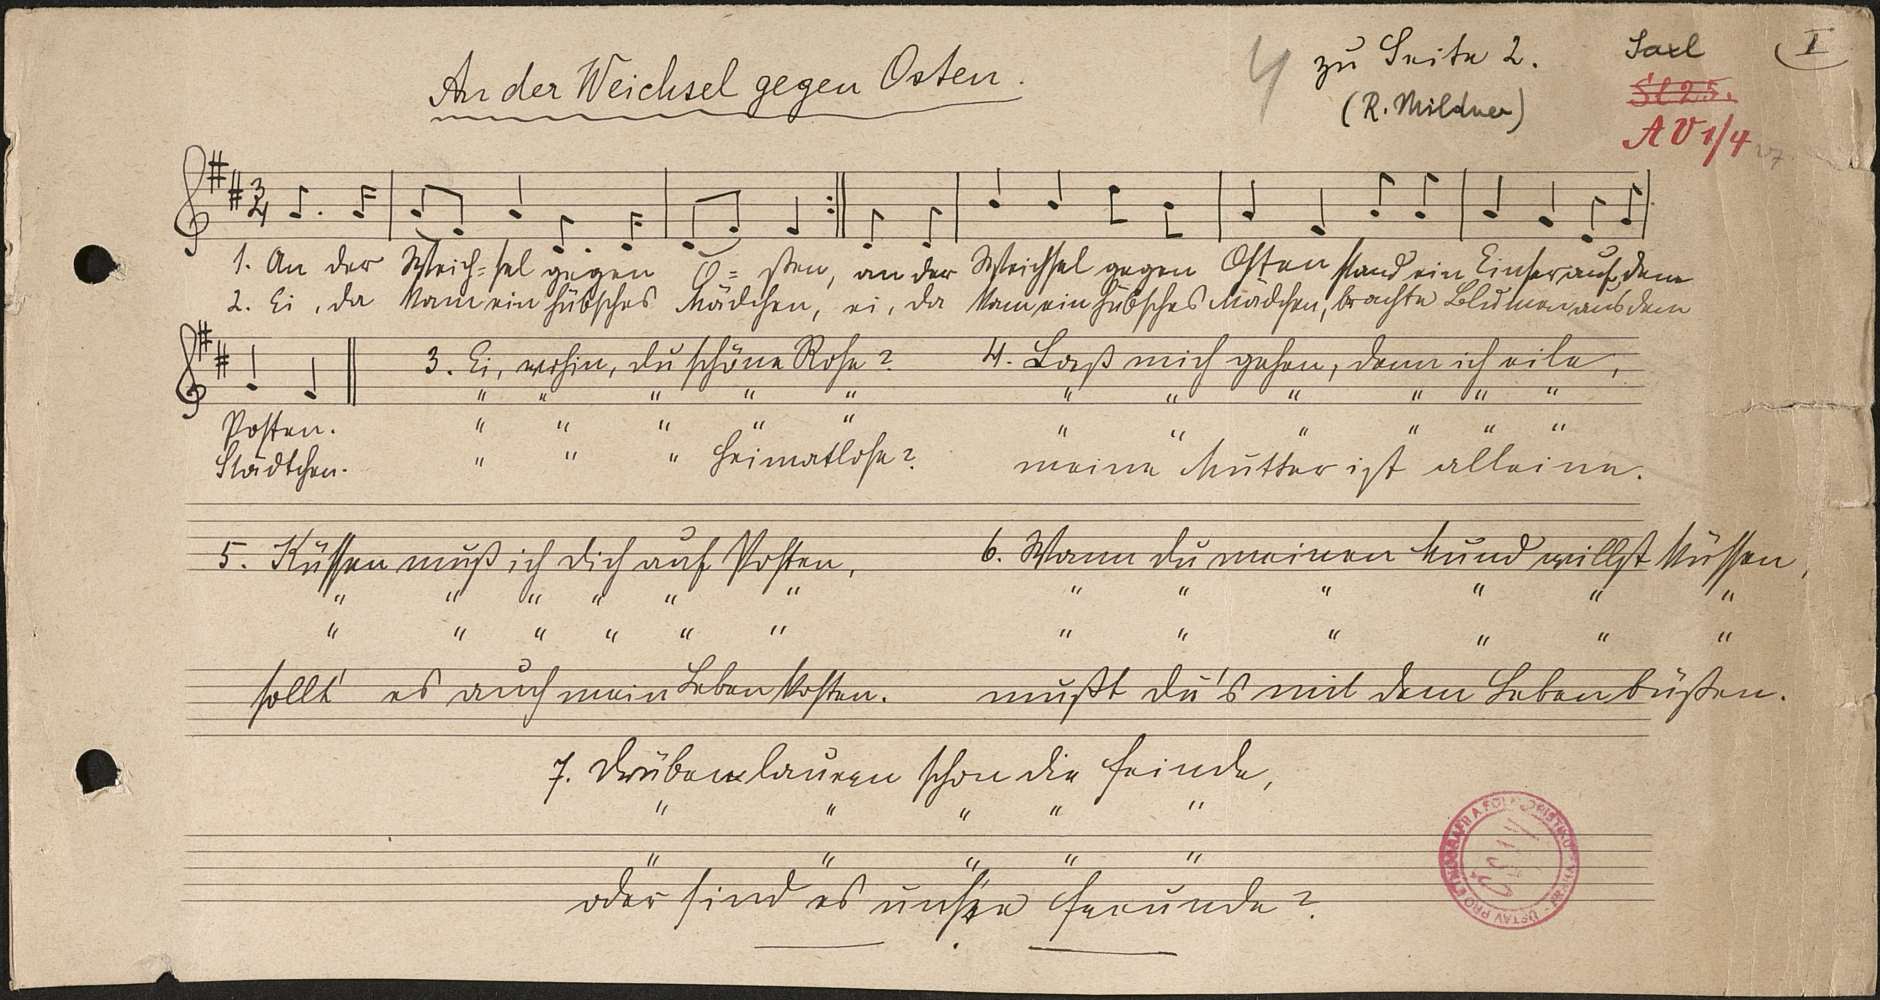 An der Weichsel gegen Osten.
4 zu Seite 2.
(R. Mildner)
Saxl
I
St 25.
A V 1/4
3/4
1. An der Weich=sel gegen O=sten, an der Weichsel gegen Osten stand ein Einser auf dem
2. Ei, da kam ein hübsches Mädchen, ei, da kam ein hübsches Mädchen, brachte Blumen aus dem
Posten.
Städtchen.
3. Ei, wohin, du schöne Rose?
" " " " "
" " " " "
" " " Heimatlose?
4. Laß mich gehen, denn ich eile,
" " " " " "
" " " " " "
meine Mutter ist alleine.
5. Küssen muß ich dich auf Posten,
" " " " " "
" " " " " "
sollt' es auch mein Leben kosten.
6. Wann du meinen Mund willst küssen,
" " " " " "
" " " " " "
mußt du's mit dem Leben büßen.
7. Drüben lauern schon die Feinde,
" " " " "
" " " " "
oder sind es unsre Freunde?
ÚSTAV PRO ETNOGRAFII A FOLKLORISTIKU